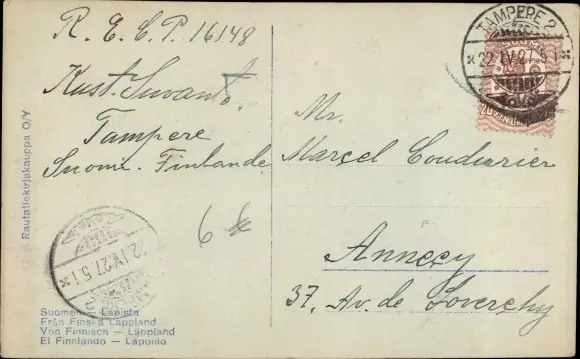 R. E. C. P. 16148
Kust. Suvanto.
Tampere
Suomi-Finlande
6
Mr.
Marcel Coudurier
Annecy
37, Av. de Loverchy
TAMPERE 2
22.IV.27.5 I
SUOMI
22.IV.27.5 I
Rautatiekirjakauppa O/Y
Suomen Lapista
Från Finska Lappland
Von Finnisch — Lappland
El Finnlando — Laponio